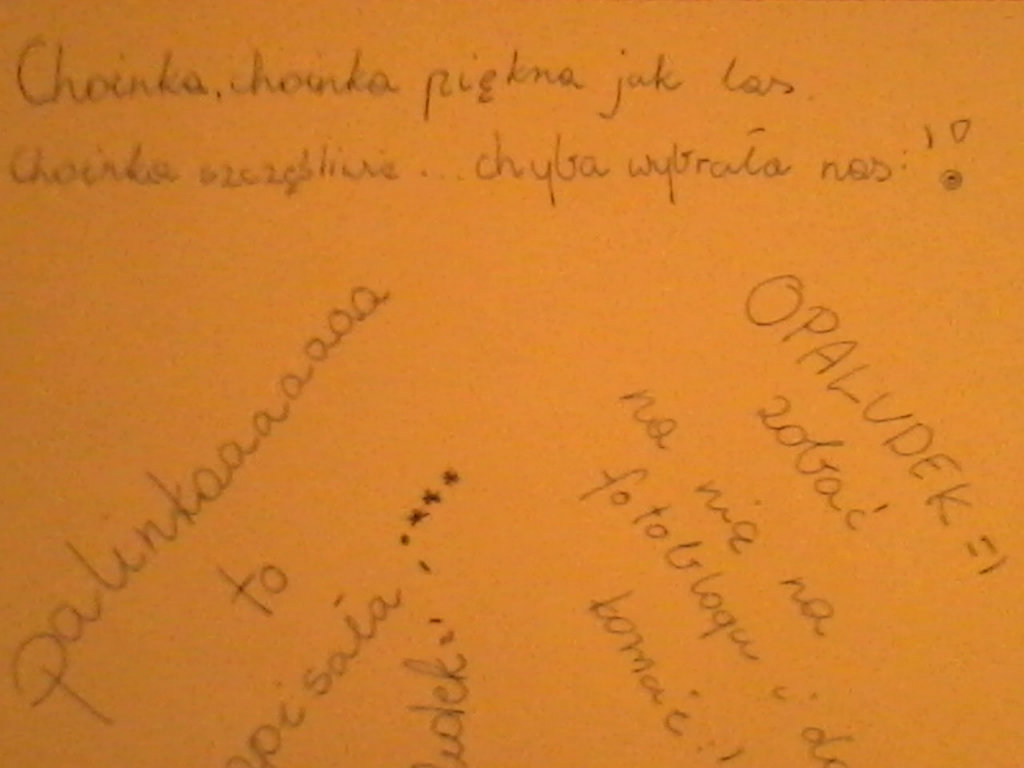 Choinka, choinka piękna jak las.
Choinka szczęśliwa... chyba wybrała nas:
Palinkaaaaaaaa
to
OPALUDEK =)
zobać
na nią na
fotoblogu i do
komać :)